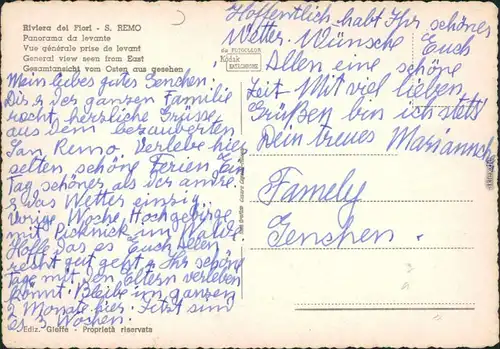 Riviera dei Fiori - S. REMO
Panorama da levante
Vue générale prise de levant
General view seen from East
Gesamtansicht vom Osten aus gesehen
Mein liebes gutes Senchen.
Dir & der ganzen Familie
recht herzliche Grüsse
aus dem bezaubernten
San Remo. Verlebe hier
selten schöne Ferien. Ein
Tag schöner als der andre.
& das Wetter einzig.
Vorige Woche Hochgebirge
mit Picknick im Walde.
Hoffe das es Euch allen
recht gut geht & Ihr schöne
Tage mit den Eltern verleben
könnt. Bleibe im ganzen
2 Monate hier. Jetzt sind
es 3 Wochen.
Ediz. Gieffe - Proprietà riservata
da FOTOCOLOR
Kodak
EKTACHROME
Hoffentlich habt Ihr schönes
Wetter. Wünsche Euch
Allen eine schöne
Zeit. Mit viel lieben
Grüßen bin ich stets
Dein treues Mariannch
Famely
Senchen.